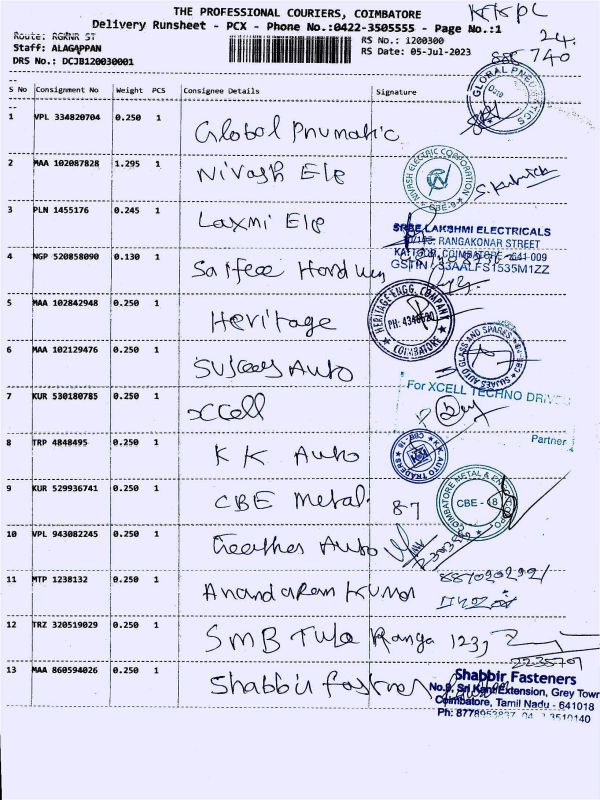 THE PROFESSIONAL COURIERS, COIMBATORE
KKPL
Delivery Runsheet - PCX - Phone No.:0422-3505555 - Page No.:1
Route: RGKNR ST
RS No.: 1200300
24.
Staff: ALAGAPPAN
RS Date: 05-Jul-2023
740
DRS No.: DCJB120030001
S No Consignment No Weight PCS Consignee Details Signature
GLOBAL PNEUMATICS
1 VPL 334820704 0.250 1 Global Pnumatic
2 MAA 102087828 1.295 1 Nivash Ele
NIVASH ELECTRIC CORPORATION
CBE-9
3 PLN 1455176 0.245 1 Laxmi Ele
SREE LAKSHMI ELECTRICALS
RANGAKONAR STREET
KATTOOR, COIMBATORE - 641 009
GSTIN : 33AALFS1535M1ZZ
4 NGP 520858090 0.130 1
5 MAA 102842948 0.250 1 Heritage
HERITAGE ENGG. COMPANY
PH: 4348520
COIMBATORE
6 MAA 102129476 0.250 1 Auto
AUTO GLASS AND SPARES
7 KUR 530180785 0.250 1 xcell
For XCELL TECHNO DRIVES
Partner
8 TRP 4848495 0.250 1 K K Auto
K.K. AUTO TRADERS
CBE-18
9 KUR 529936741 0.250 1 CBE Metal. 87
COIMBATORE METAL &
CBE - 8
10 VPL 943082245 0.250 1 Auto
11 MTP 1238132 0.250 1
12 TRZ 320519029 0.250 1 SMB Tube Ranga
2235709
13 MAA 860594026 0.250 1 Shabbir fastner
Shabbir Fasteners
Extension, Grey Town
Coimbatore, Tamil Nadu - 641018
3510140